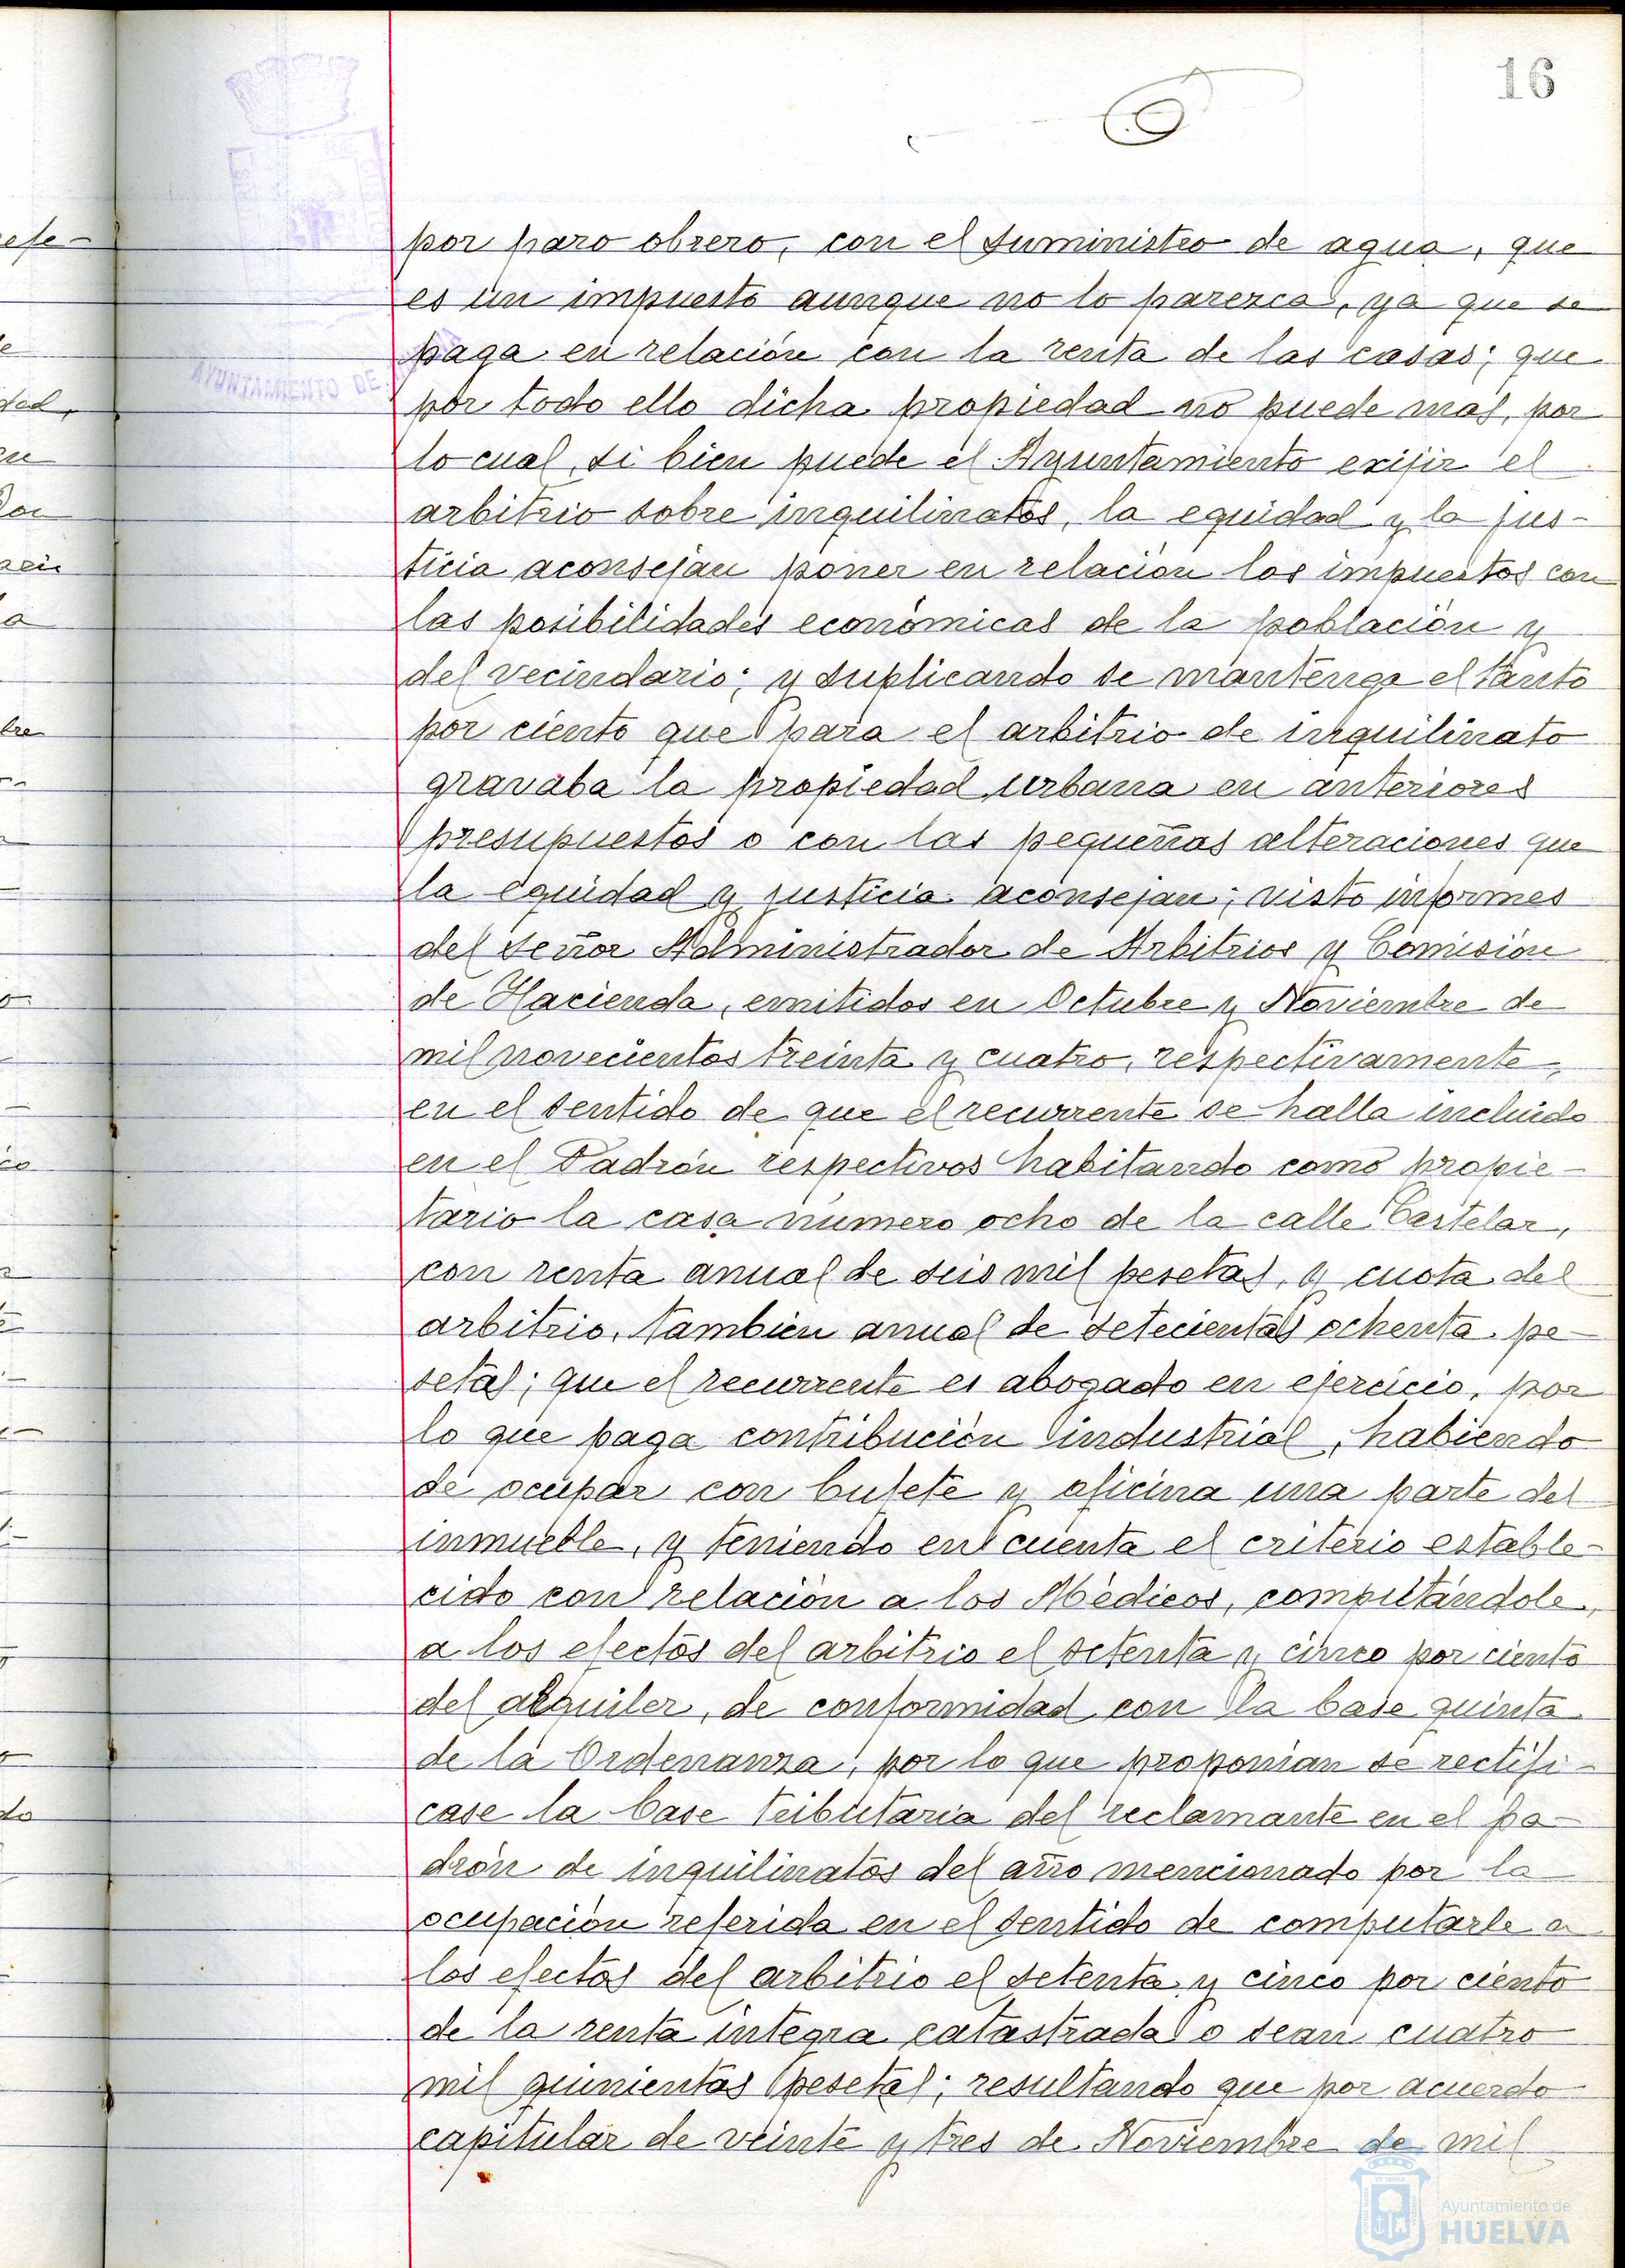 16
por paro obrero, con el suministro de agua, que
es un impuesto aunque no lo parezca, ya que se
paga en relación con la renta de las casas; que
AYUNTAMIENTO DE
por todo ello dicha propiedad no puede mas, por
lo cual, si bien puede el Ayuntamiento exijir el
arbitrio sobre inquilinatos, la equidad y la jus-
ticia aconsejan poner en relación los impuestos con
las posibilidades económicas de la población y
del vecindario; y suplicando se mantenga el tanto
por ciento que para el arbitrio de inquilinato
gravaba la propiedad urbana en anteriores
presupuestos o con las pequeñas alteraciones que
la equidad y justicia aconsejan; visto informes
del señor Administrador de Arbitrios y Comisión
de Hacienda, emitidos en Octubre y Noviembre de
mil novecientos treinta y cuatro, respectivamente,
en el sentido de que el recurrente se halla incluido
en el Padrón respectivos habitando como propie-
tario la casa número ocho de la calle Castelar,
con renta anual de seis mil pesetas, y cuota del
arbitrio, tambien anual de setecientas ochenta pe-
setas; que el recurrente es abogado en ejercicio, por
lo que paga contribución industrial, habiendo
de ocupar con bufete y oficina una parte del
inmueble, y teniendo en cuenta el criterio estable-
cido con relación a los Médicos, computándole,
a los efectos del arbitrio el setenta y cinco por ciento
del alquiler, de conformidad con la base quinta
de la Ordenanza, por lo que proponian se rectifi-
case la base tributaria del reclamante en el pa-
drón de inquilinatos del año mencionado por la
ocupación referida en el sentido de computarle a
los efectos del arbitrio el setenta y cinco por ciento
de la renta integra catastrada o sean cuatro
mil quinientas pesetas; resultando que por acuerdo
capitular de veinte y tres de Noviembre de mil
Ayuntamiento de
HUELVA